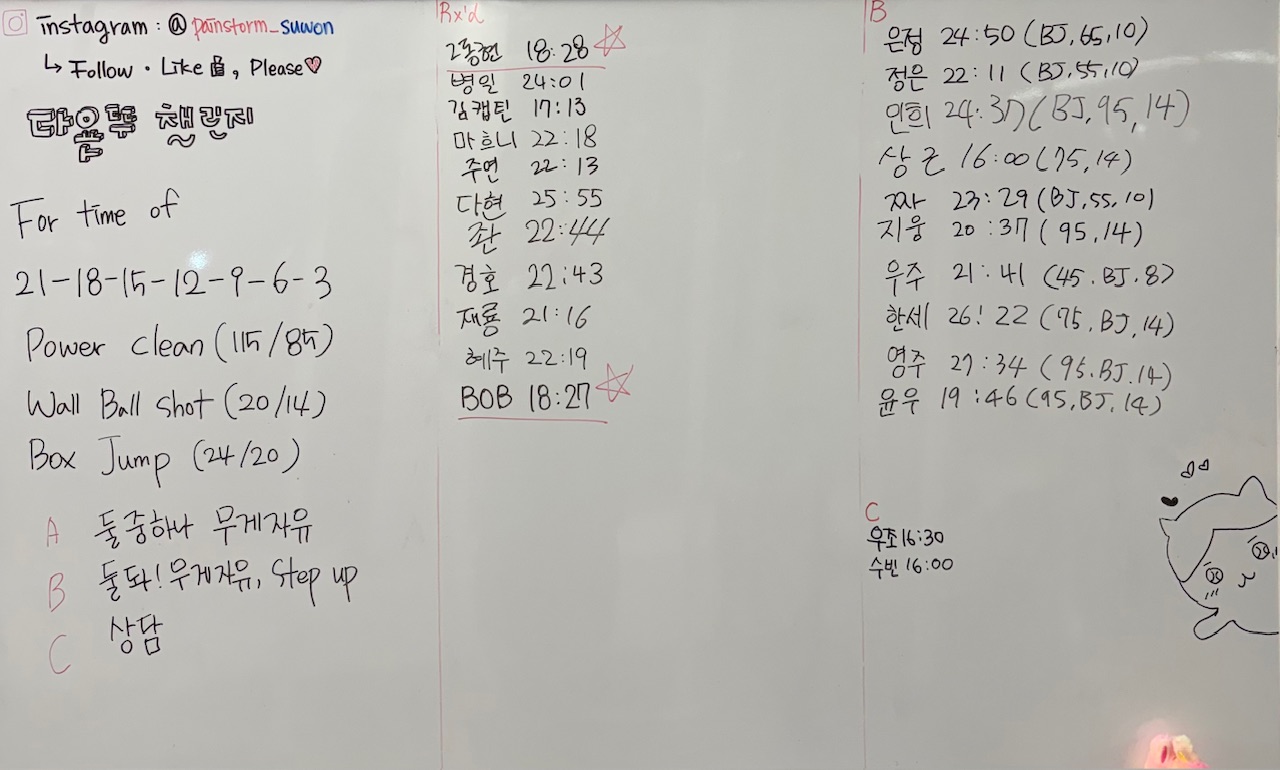 instagram : @painstorm_suwon
↳ Follow · Like 👍, Please♥
다음뚜 챌린지
For time of
21-18-15-12-9-6-3
Power clean (115/85)
Wall Ball shot (20/14)
Box Jump (24/20)
A 둘중하나 무게자유
B 둘돠! 무게자유, Step up
C 상담
Rx'd
그동현 18:28 ☆
병일 24:01
김캡틴 17:13
마흐니 22:18
주연 22:13
다현 25:55
좐 22:44
경호 22:43
재룡 21:16
혜주 22:19
BOB 18:27 ☆
B
은정 24:50 (BJ, 65, 10)
정은 22:11 (BJ, 55, 10)
인희 24:37 (BJ, 95, 14)
상근 16:00 (75, 14)
짜 23:29 (BJ, 55, 10)
지웅 20:37 (95, 14)
우주 21:41 (45. BJ. 8)
한세 26:22 (75, BJ, 14)
영주 27:34 (95. BJ. 14)
윤우 19:46 (95, BJ, 14)
C
우조 16:30
수빈 16:00